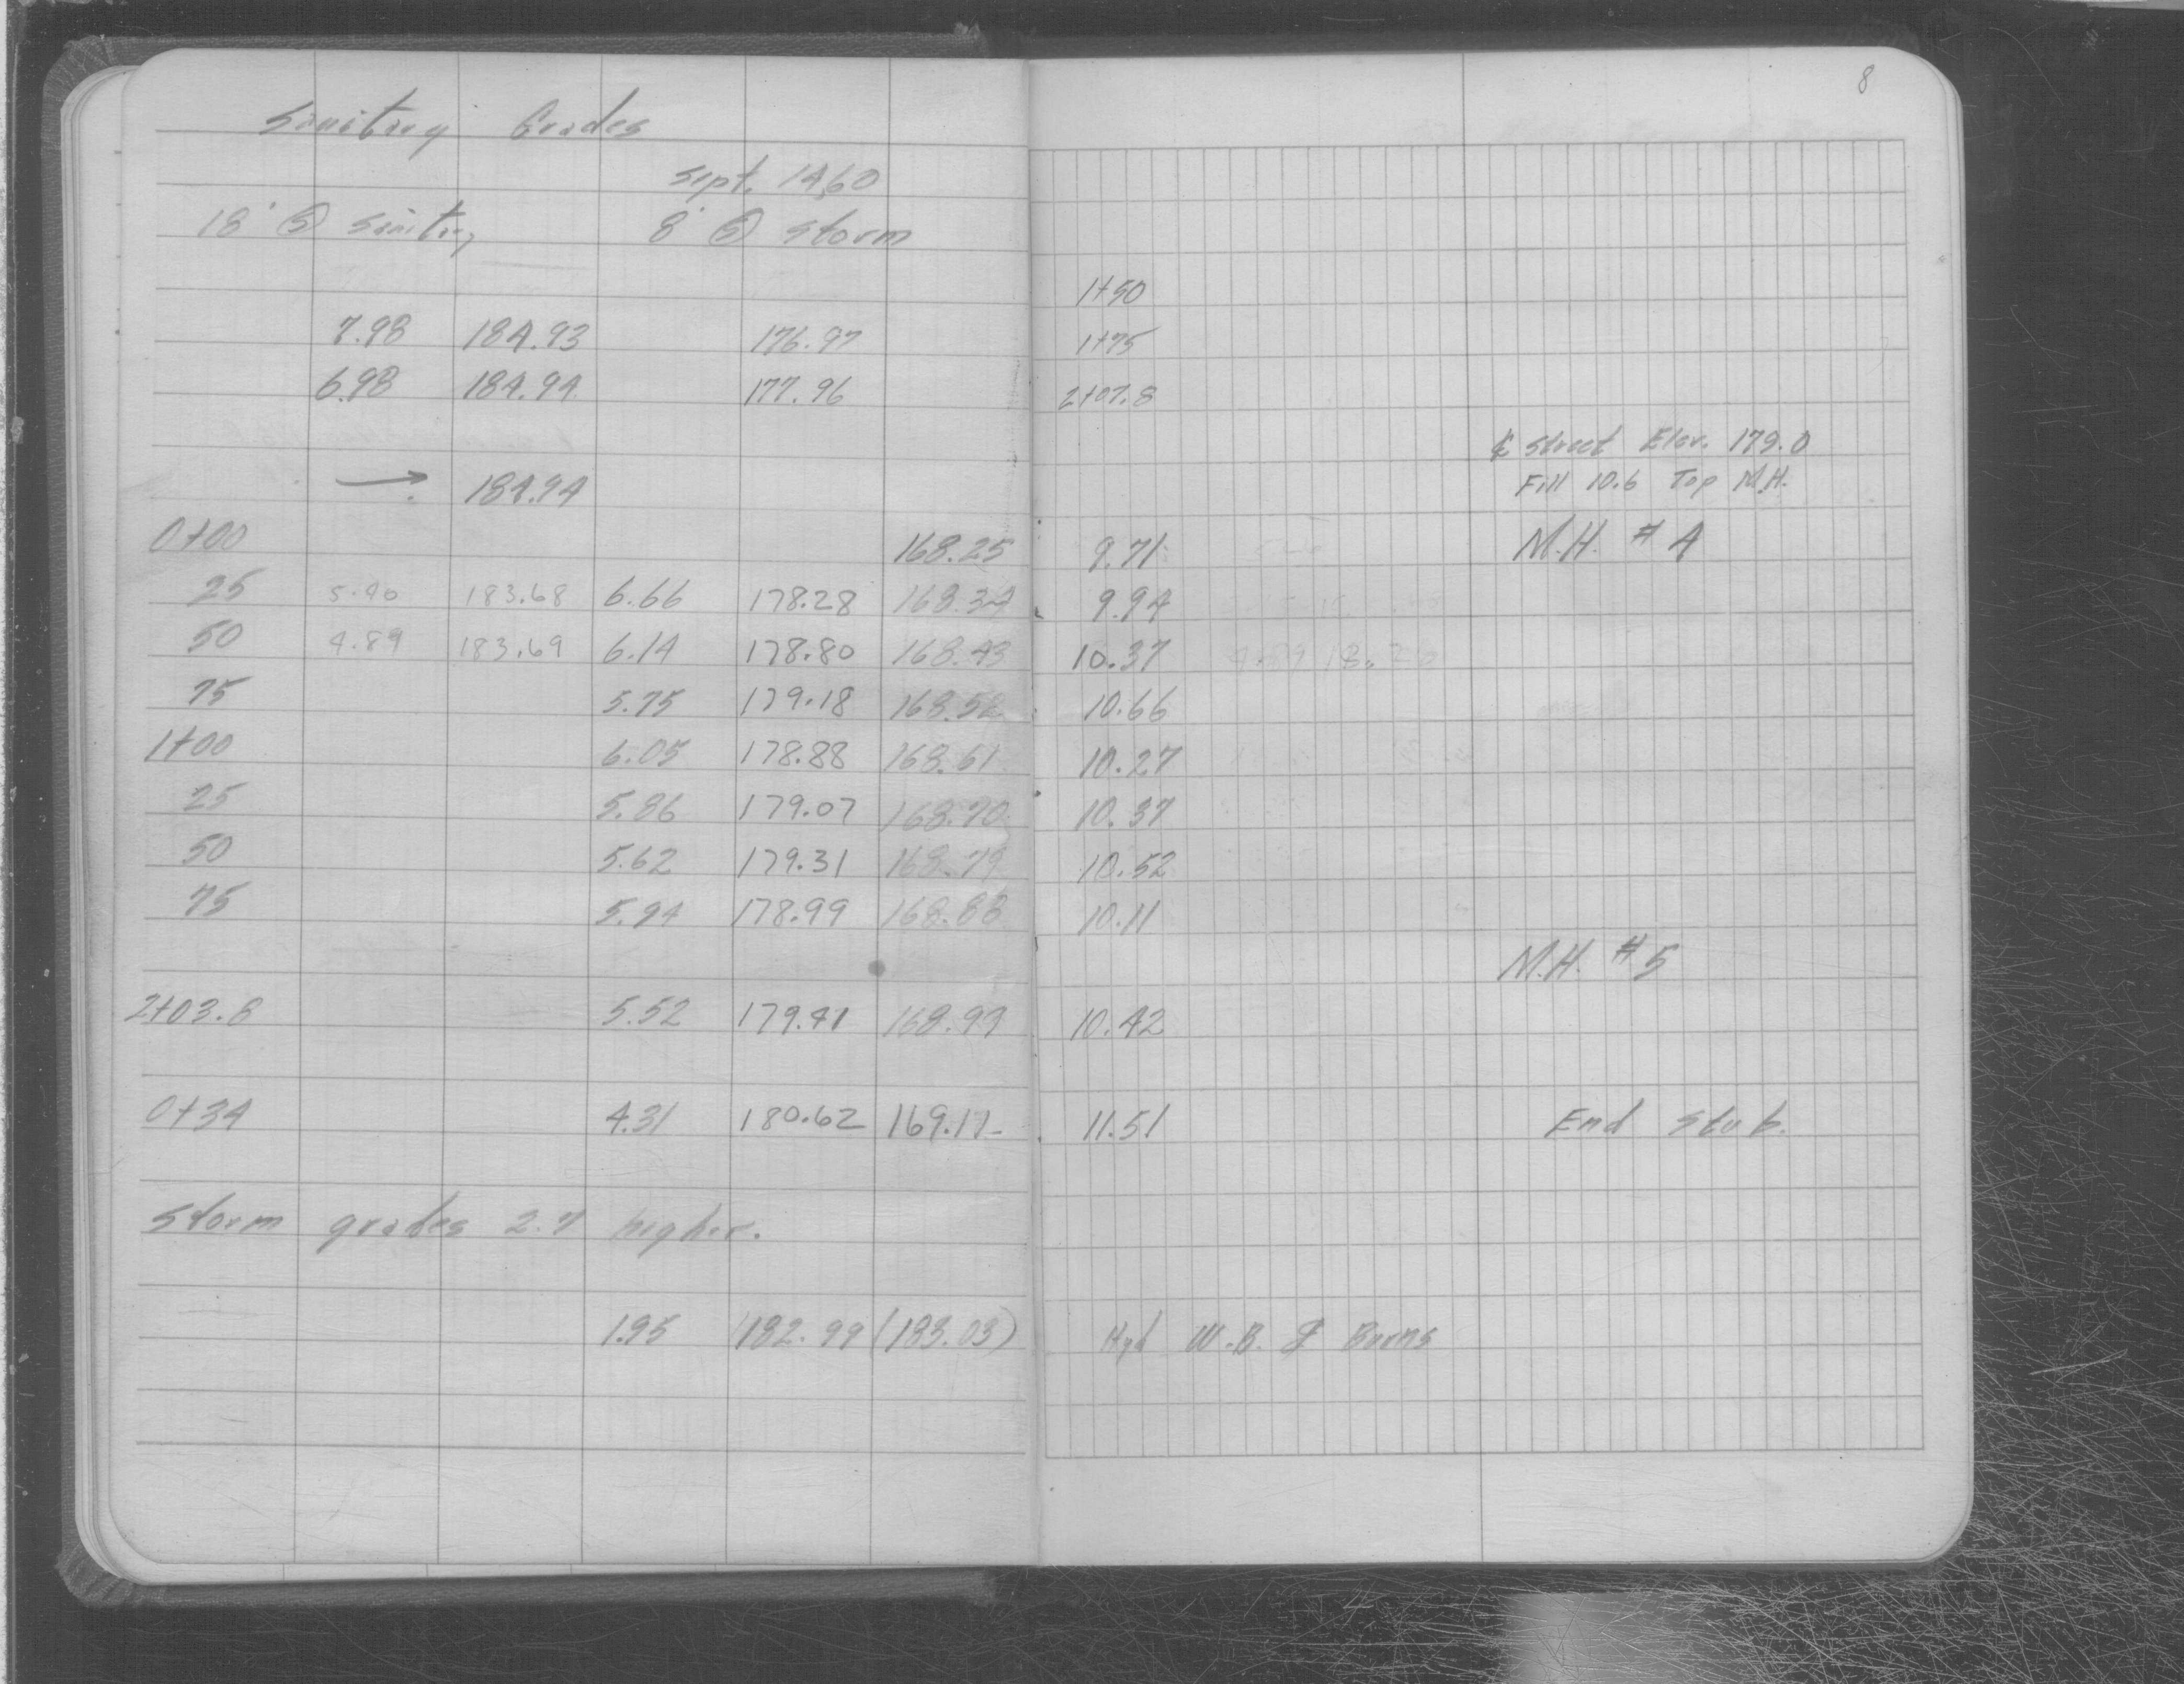 8
Sanitary Grades
Sept. 14, 60
18' Ⓢ Sanitary 8' Ⓢ Storm
1+50
7.98 184.93 176.97 1+75
6.98 184.94 177.96 2+07.8
℄ Street Elev. 179.0
→ 184.94 Fill 10.6 Top M.H.
0+00 168.25 9.71 M.H. # 4
25 5.40 183.68 6.66 178.28 168.34 9.94
50 4.89 183.69 6.14 178.80 168.43 10.37
75 5.75 179.18 168.52 10.66
1+00 6.05 178.88 168.61 10.27
25 5.86 179.07 168.70 10.37
50 5.62 179.31 168.79 10.52
75 5.94 178.99 168.88 10.11
M.H. # 5
2+03.8 5.52 179.41 168.99 10.42
0+34 4.31 180.62 169.11 11.51 End Stub.
Storm grades 2.7 higher.
1.95 182.99 (183.03) Hyd W.B. & Burns